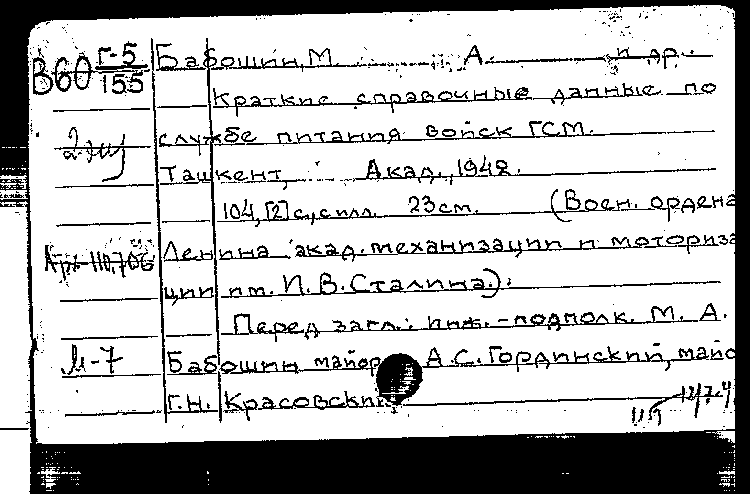 В60 Г-5/155 Бабошин, М. А. и др.
Краткие справочные данные по
службе питания войск ГСМ.
Ташкент, Акад., 1942.
104, [2] с., с илл. 23 см. (Воен. ордена
Арх-110,706 Ленина акад. механизации и моториза
ции им. И. В. Сталина.).
Перед загл.: инж.-подполк. М. А.
М-7 Бабошин майор А.С. Гординский, майо
Г.Н. Красовский